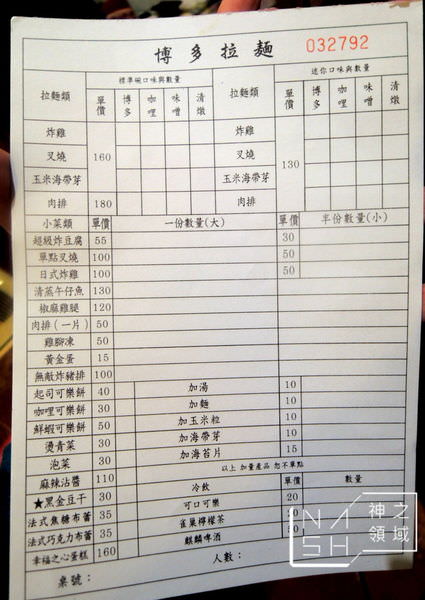 博多拉麵 032792
拉麵類 標準碗口味與數量 拉麵類 迷你口味與數量
單價 博多 咖哩 味噌 清燉 單價 博多 咖哩 味噌 清燉
炸雞 160 炸雞 130
叉燒 叉燒
玉米海帶芽 玉米海帶芽
肉排 180 肉排
小菜類 單價 一份數量(大) 單價 半份數量(小)
超級炸豆腐 55 30
單點叉燒 100 50
日式炸雞 100 50
清蒸午仔魚 130
椒麻雞腿 120
肉排(一片) 50
雞腳凍 50
黃金蛋 15
無敵炸豬排 100
起司可樂餅 40 加湯 10
咖哩可樂餅 30 加麵 10
鮮蝦可樂餅 50 加玉米粒 10
燙青菜 30 加海帶芽 10
泡菜 30 加海苔片 15
麻辣沾醬 110 以上加量產品 恕不單點
★黑金豆干 30 冷飲 單價 數量
法式焦糖布蕾 35 可口可樂 20
法式巧克力布蕾 35 雀巢檸檬茶
幸福之心蛋糕 160 麒麟啤酒
桌號： 人數：
NASH 神之領域